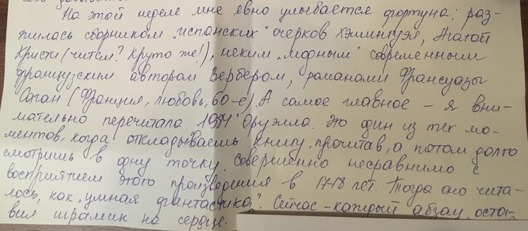 На этой неделе мне явно улыбается фортуна: раз-
жилась сборником испанских очерков Хэмингуэя, Агатой
Кристи (читал? Круто же!), неким „модным" современным
французским автором Вербером, романами Франсуазы
Саган (Франция, любовь, 60-е). А самое главное – я вни-
мательно перечитала 1984 Оруэлла. Это один из тех мо-
ментов, когда откладываешь книгу, прочитав, а потом долго
смотришь в одну точку. Совершенно несравнимо с
восприятием этого произведения в 17-18 лет. Тогда оно чита-
лось, как „умная фантастика". Сейчас – каждый абзац остав-
вил шрамик на сердце.